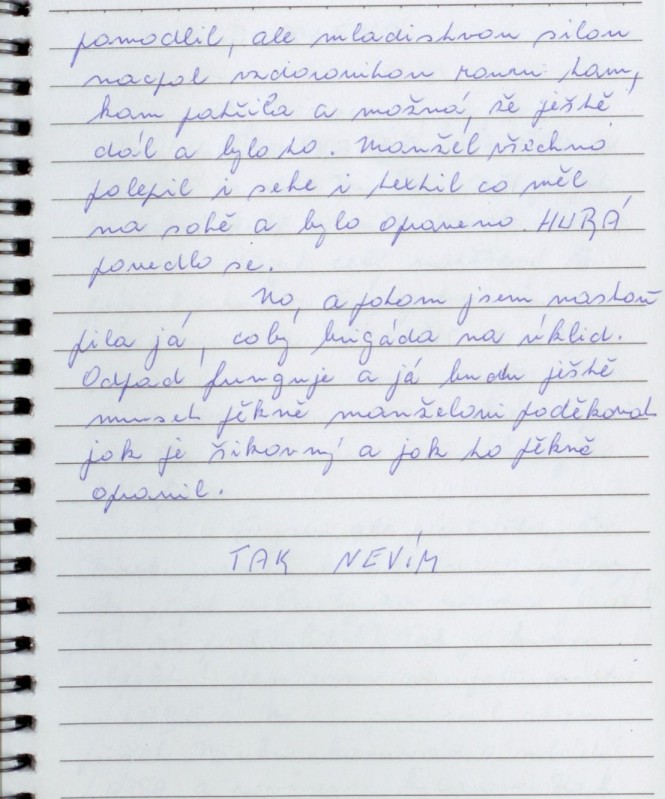 pomodlil, ale mladistvou silou
nacpal vzdorovitou rouru tam,
kam patřila a možná, že ještě
dál a bylo to. Manžel všechno
polepil i sebe i textil co měl
na sobě a bylo opraveno. HURÁ
povedlo se.
No, a potom jsem nastou
pila já, coby brigáda na úklid.
Odpad funguje a já budu ještě
muset pěkně manželovi poděkovat
jak je šikovný a jak to pěkně
opravil.
TAK NEVÍM